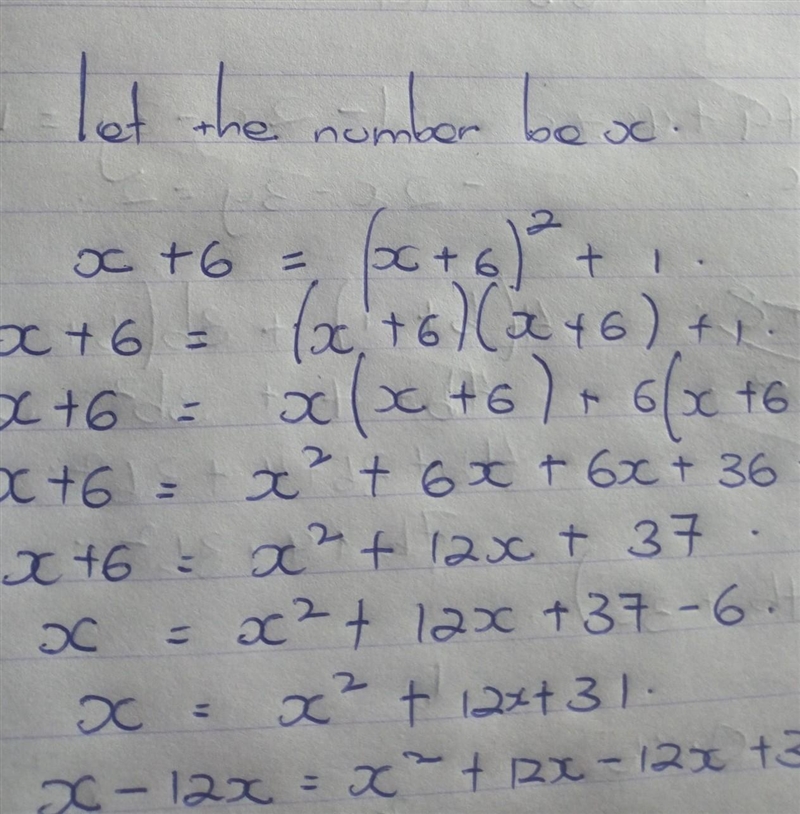 let the number be x.
x + 6 = (x + 6)² + 1.
x + 6 = (x + 6)(x + 6) + 1.
x + 6 = x(x + 6) + 6(x + 6
x + 6 = x² + 6x + 6x + 36
x + 6 = x² + 12x + 37.
x = x² + 12x + 37 - 6.
x = x² + 12x + 31.
x - 12x = x² + 12x - 12x + 3